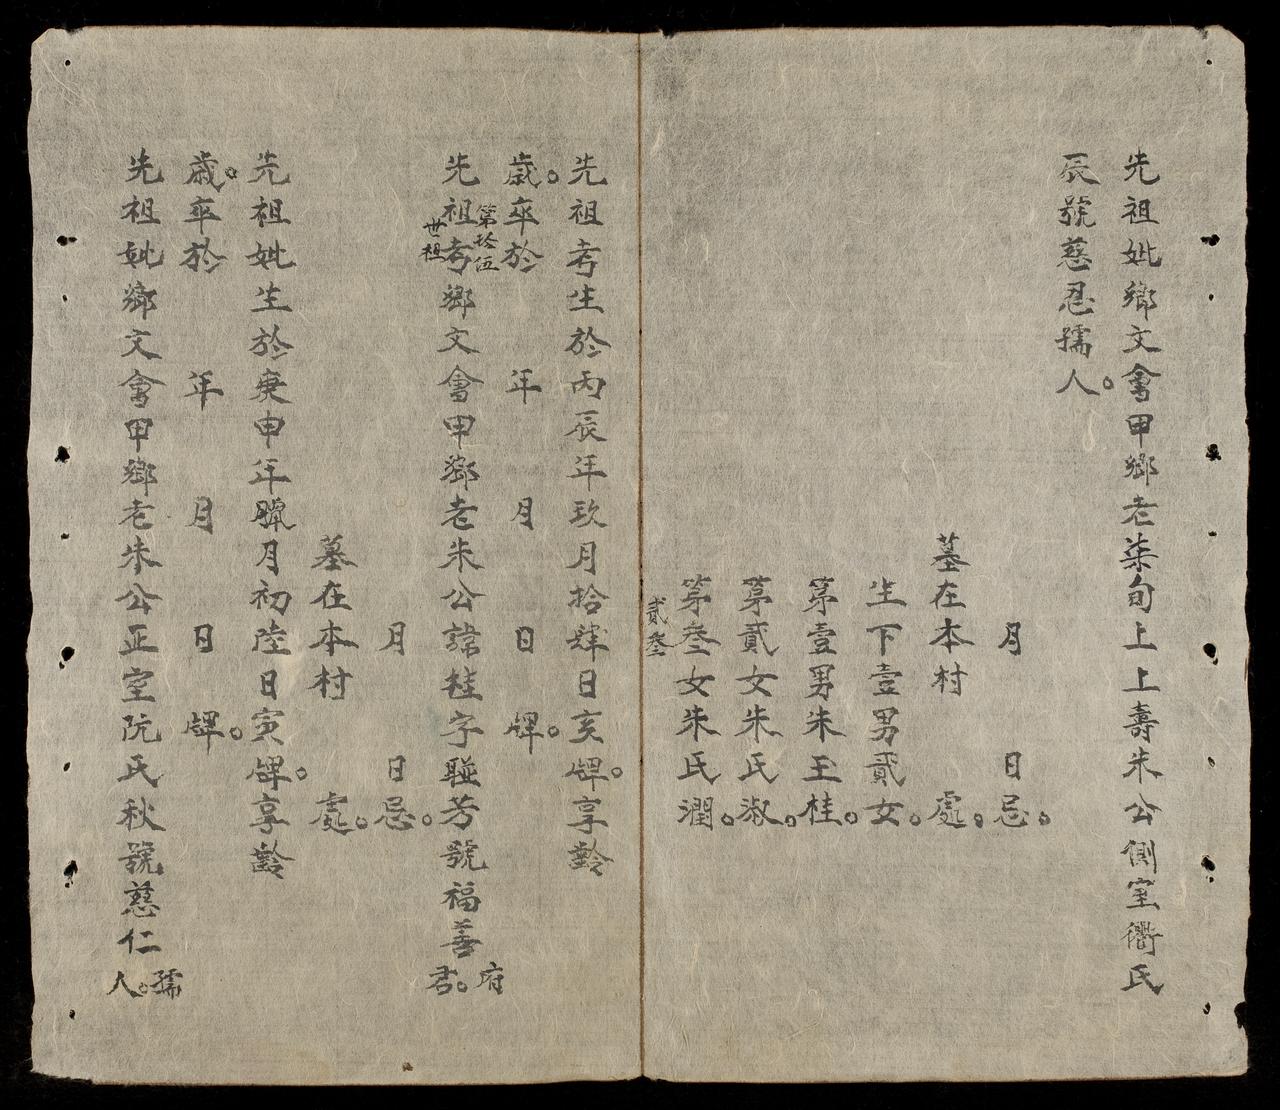 先祖妣鄉文會甲鄉老柒旬上上壽朱公側室衢氏
辰號慈忍孺人。
月日忌。
墓在本村處。
生下壹男貳女。
第壹男朱玉桂。
第貳女朱氏淑。
第叁女朱氏潤。
貳叁
先祖考生於丙辰年玖月拾肆日亥牌。享齡
歲。卒於年月日牌。
第拾伍世祖
先祖考鄉文會甲鄉老朱公諱桂字聰芳號福善府君。
月日忌。
墓在本村處。
先祖妣生於庚申年臘月初陸日寅牌。享齡
歲。卒於年月日牌。
先祖妣鄉文會甲鄉老朱公正室阮氏秋號慈仁孺人。